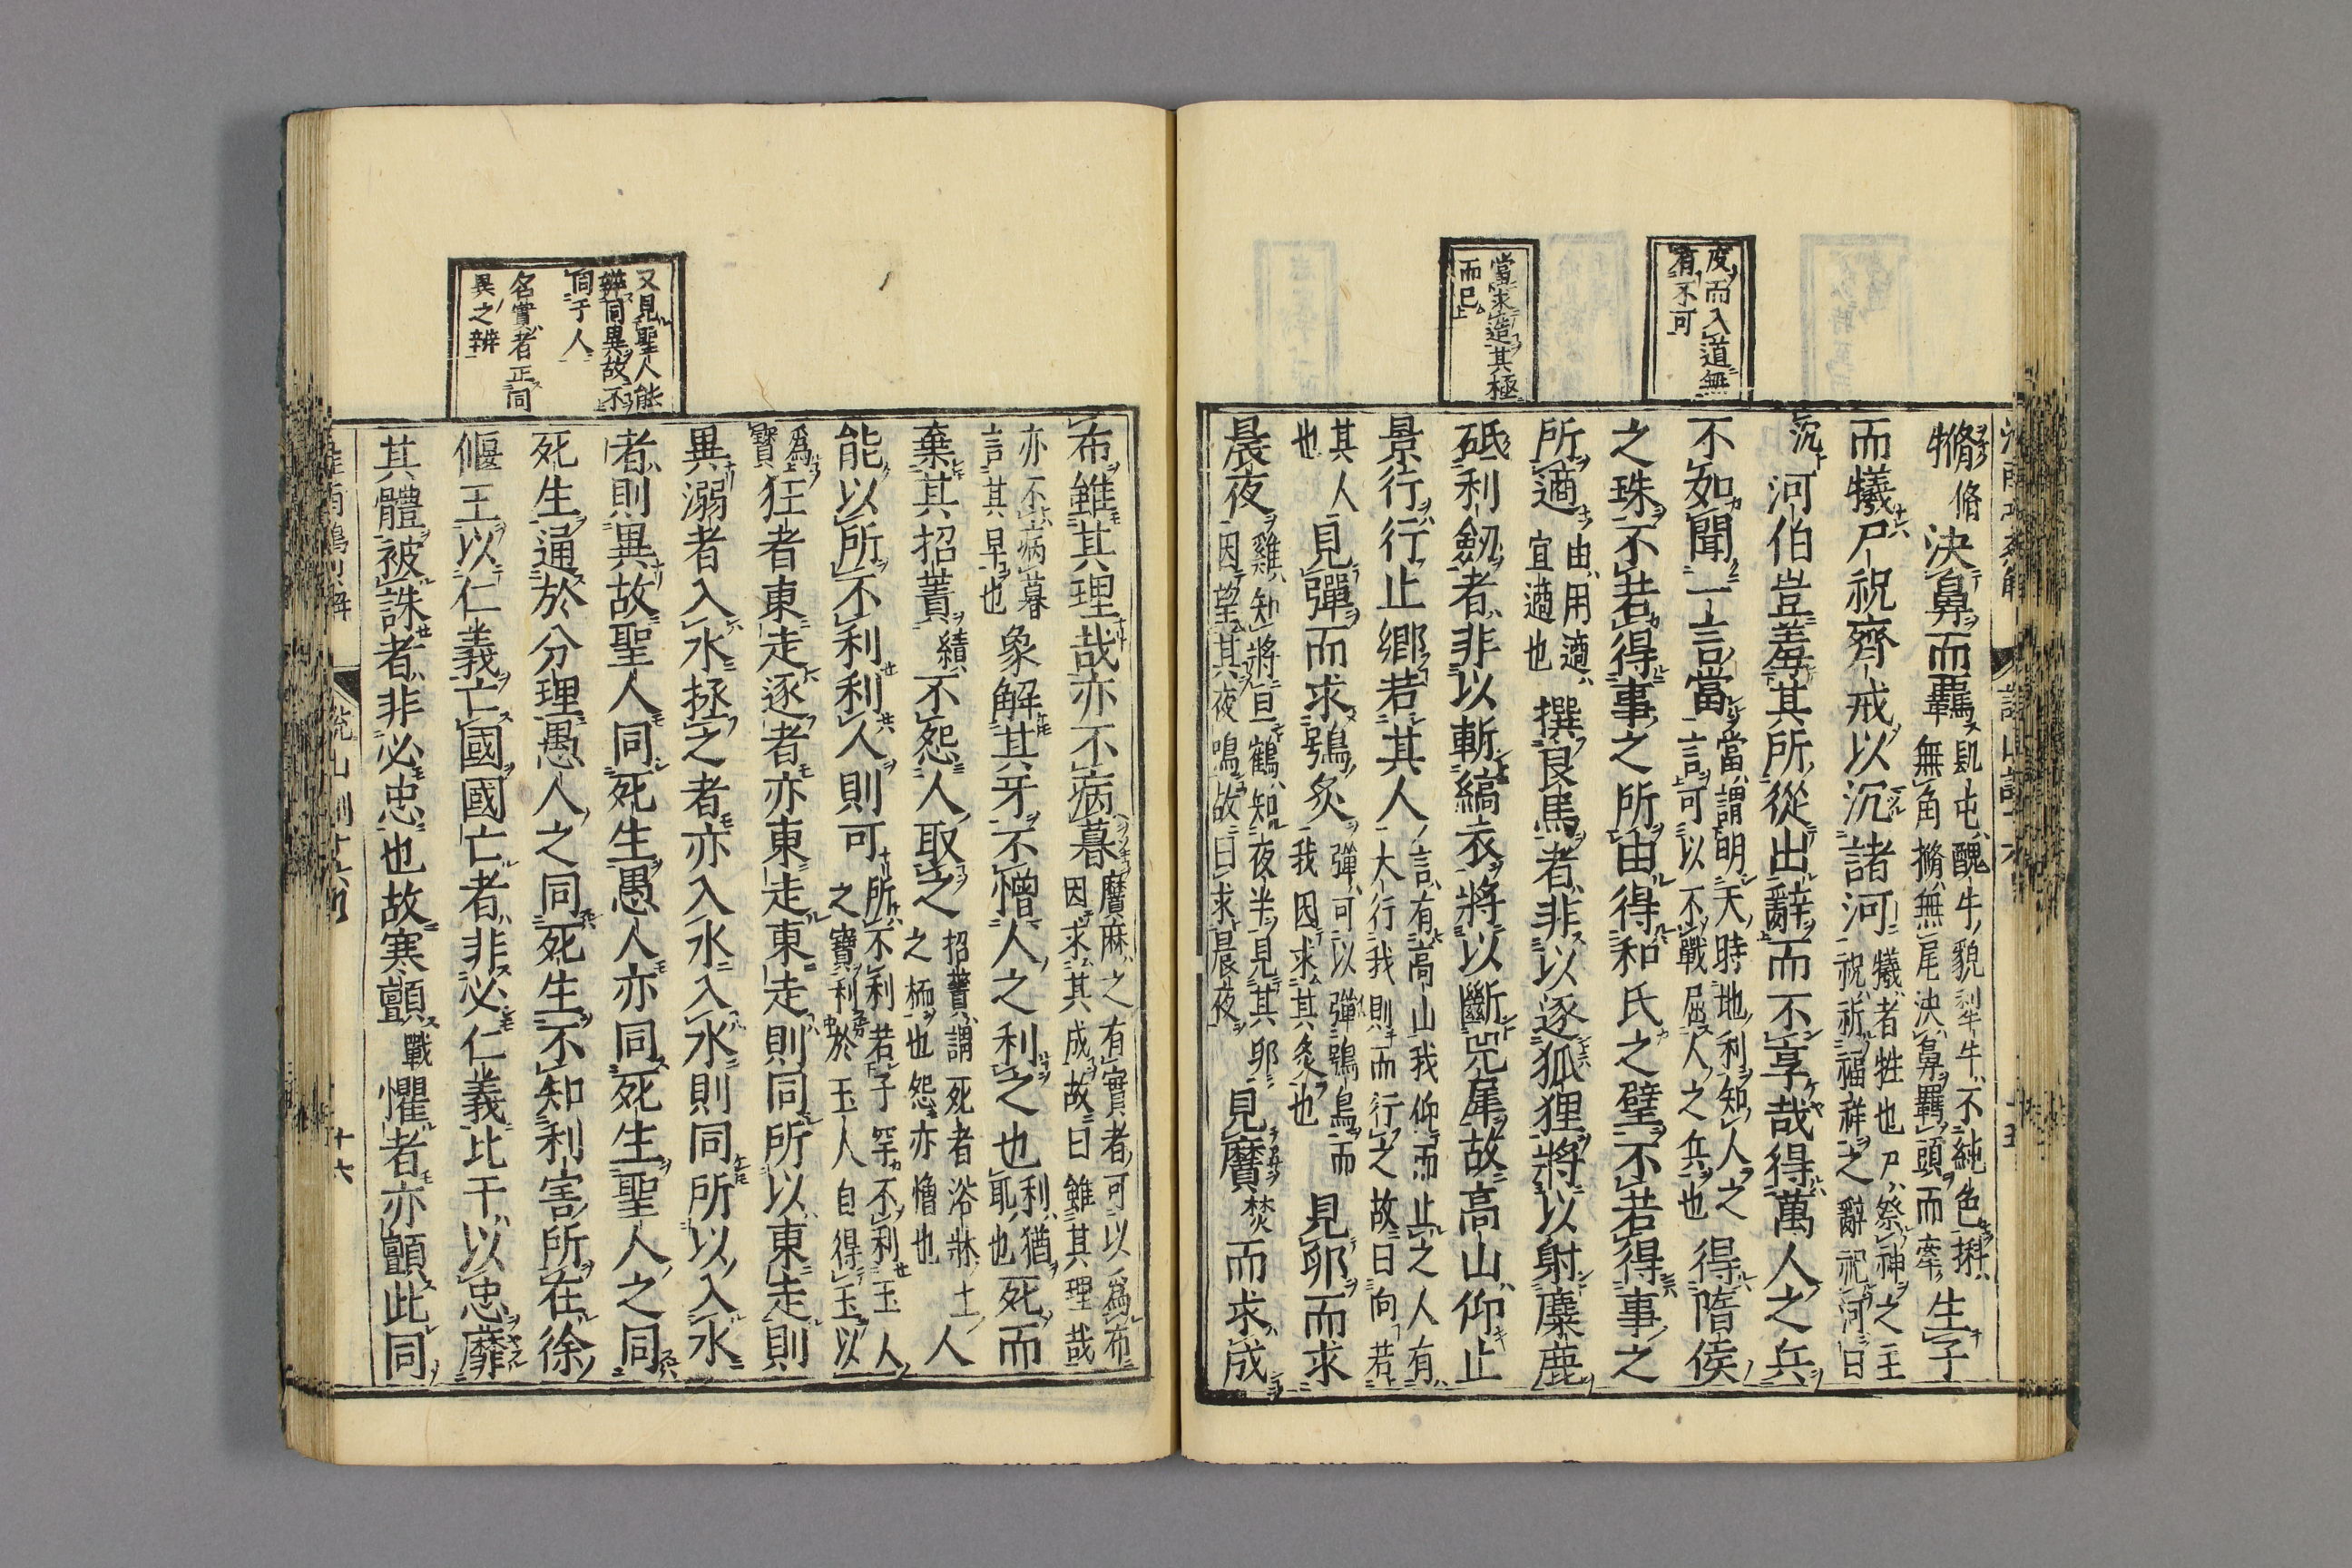 度而入道無
有不可
當求造其極
而已
犐脩決鼻而羈㔽屯醜牛貌犁牛不純色㹂生子
無角犐無尾決鼻羈頭而牽
而犧尸祝齊戒以沉諸河犧者牲也尸祭神之主
祝祈福祥之辭祀河曰
沉河伯豈羞其所從出辭而不享哉得萬人之兵
不如聞一言當當謂明天時地利知人之
言可以不戰屈人之兵也得隋侯
之珠不若得事之所由得和氏之璧不若得事之
所適由用適
宜適也撰良馬者非以逐狐狸將以射麋鹿
砥利劒者非以斬縞衣將以斷兕犀故高山仰止
景行行止鄉若其人言有高山我仰而止之人有
大行我則而行之故曰向若
其人
也見彈而求鴞炙彈可以彈鴞鳥而
我因求其炙也見卵而求
晨夜雞知將旦鶴知夜半見其卵
因望其夜鳴故曰求晨夜見黂焚而求成
又見聖人能
辨同異故不
同于人
名實者正同
異之辨
布雖其理哉亦不病暮黂麻之有實者可以爲布
因求其成故曰雖其理哉
亦不病暮
言其早也象解其牙不憎人之利之也利猶
耴也死而
棄其招蕢績不怨人取之招蕢謂死者浴牀士
之栭也怨亦憎也人
能以所不利利人則可所不利若子罕不利玉人
之寶利於玉人自得玉以
爲
寳狂者東走逐者亦東走東走則同所以東走則
異溺者入水拯之者亦入水入水則同所以入水
者則異故聖人同死生愚人亦同死生聖人之同
死生通於分理愚人之同死生不知利害所在徐
偃王以仁義亡國國亡者非必仁義比干以忠靡
其體被誅者非必忠也故寒顫戰懼者亦顫此同
十六